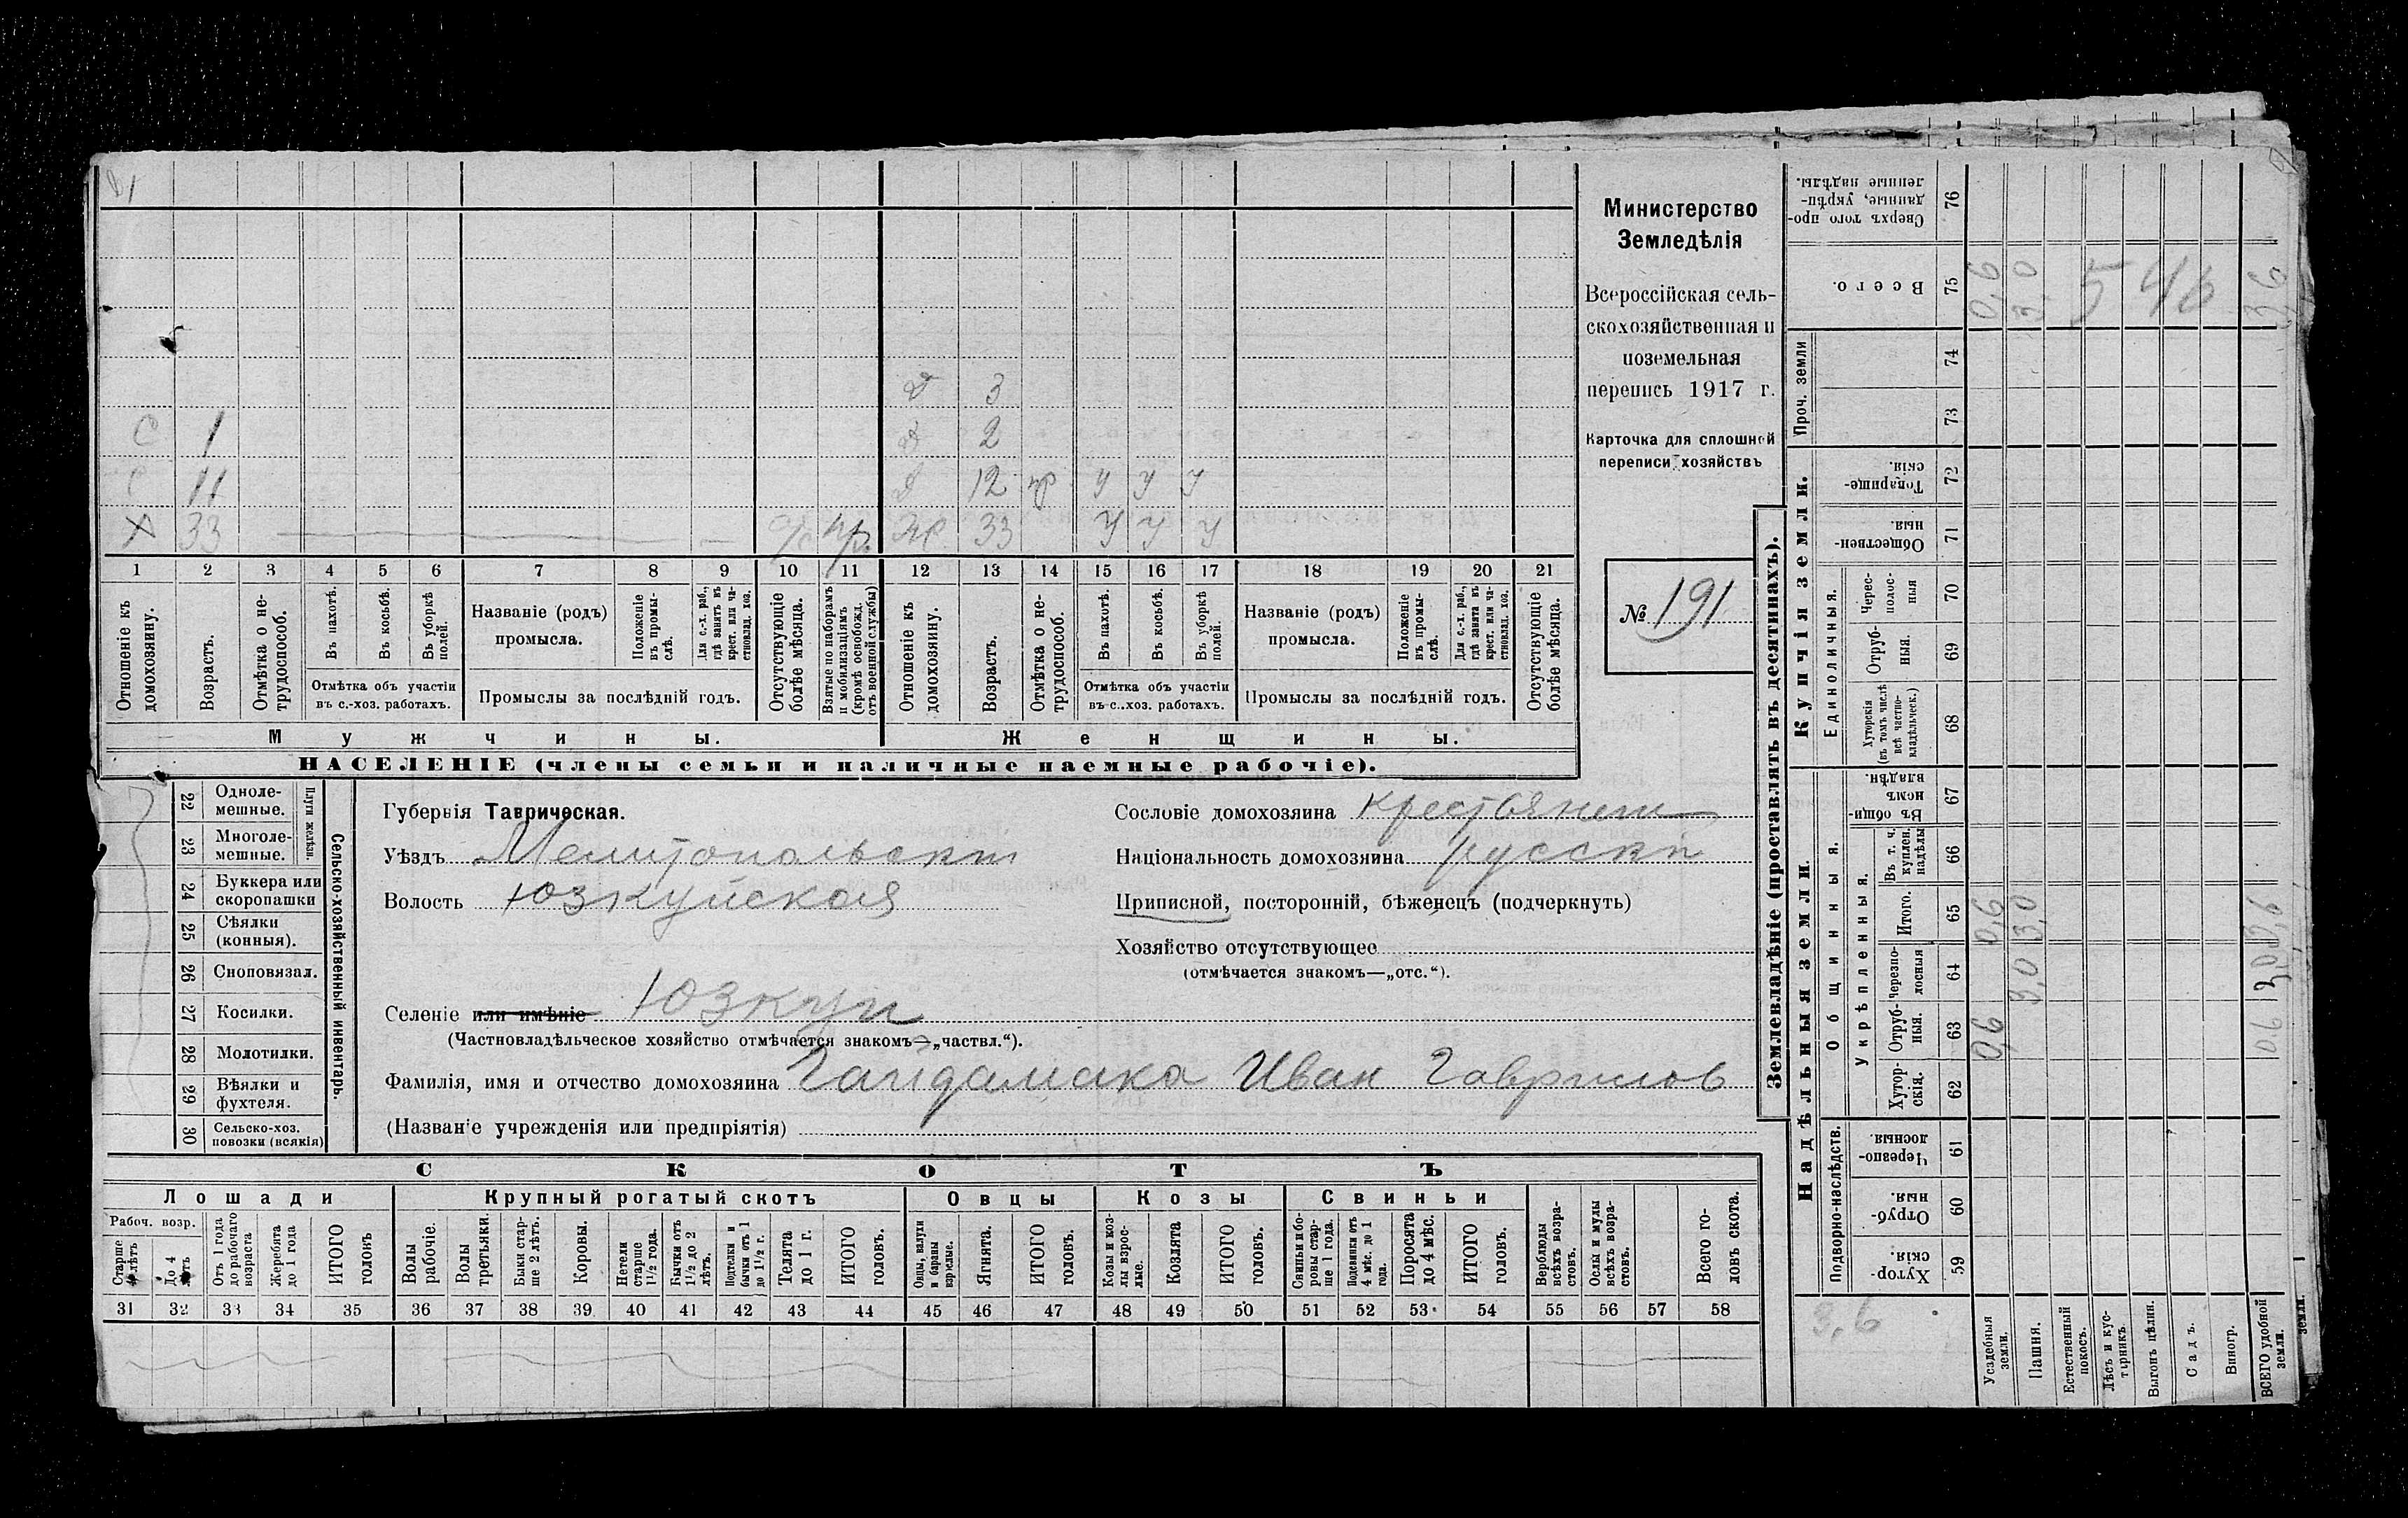 Министерство
Земледѣлія
Всероссійская сель-
скохозяйственная и
поземельная
перепись 1917 г.
Карточка для сплошной
переписи хозяйствъ
№ 191
Д 3
С 1 Д 2
С 11 Д 12 пр У У У
Х 33 пр. Ж 33 У У У
1 2 3 4 5 6 7 8 9 10 11 12 13 14 15 16 17 18 19 20 21
Отношеніе къ домохозяину.
Возрастъ.
Отмѣтка о не-трудоспособ.
Въ пахотѣ.
Въ косьбѣ.
Въ уборкѣ полей.
Отмѣтка объ участіи
въ с.-хоз. работахъ.
Названіе (родъ)
промысла.
Положеніе въ промы-слѣ.
Для с.-х. раб., гдѣ занятъ въ крест. или ча-стновлад. хоз.
Промыслы за послѣдній годъ.
Отсутствующіе болѣе мѣсяца.
Взятые по наборамъ и мобилизаціямъ (кромѣ освобожд. отъ военной службы)
Отношеніе къ домохозяину.
Возрастъ.
Отмѣтка о не-трудоспособ.
Въ пахотѣ.
Въ косьбѣ.
Въ уборкѣ полей.
Отмѣтка объ участіи
въ с..хоз. работахъ.
Названіе (родъ)
промысла.
Положеніе въ промы-слѣ.
Для с.-х. раб., гдѣ занята въ крест. или ча-стновлад. хоз.
Промыслы за послѣдній годъ.
Отсутствующіе болѣе мѣсяца.
Мужчины. Женщины.
НАСЕЛЕНІЕ (члены семьи и наличные наемные рабочіе).
Сельско-хозяйственный инвентарь.
Плуги желѣзн.
22 Одноле-мешные.
23 Многоле-мешные.
24 Буккера или скоропашки
25 Сѣялки (конныя).
26 Сноповязал.
27 Косилки.
28 Молотилки.
29 Вѣялки и фухтеля.
30 Сельско-хоз. повозки (всякія)
Губернія Таврическая.
Уѣздъ Мелитопольскій
Волость Юзкуйская
Селеніе или имѣніе Юзкуи
(Частновладѣльческое хозяйство отмѣчается знакомъ—„частвл.“).
Фамилія, имя и отчество домохозяина Гайдамака Иван Гаврилов
(Названіе учрежденія или предпріятія)
Сословіе домохозяина крестьянин
Національность домохозяина русскій
Приписной, посторонній, бѣженецъ (подчеркнуть)
Хозяйство отсутствующее
(отмѣчается знакомъ—„отс.“).
СКОТЪ
Лошади Крупный рогатый скотъ Овцы Козы Свиньи
Рабоч. возр.
Старше 4 лѣтъ
До 4 лѣтъ
Отъ 1 года до рабочаго возраста
Жеребята до 1 года
ИТОГО головъ
Волы рабочіе.
Волы третьяки.
Быки стар-ше 2 лѣтъ.
Коровы.
Нетели старше 1½ года.
Бычки отъ 1½ до 2 лѣтъ.
Подтелки и бычки отъ 1 до 1½ г.
Телята до 1 г.
ИТОГО головъ.
Овцы, валухи и бараны взрослые.
Ягнята.
ИТОГО головъ.
Козы и коз-лы взрос-лые.
Козлята
ИТОГО головъ.
Свиньи и бо-ровы стар-ше 1 года.
Подсвинки отъ 4 мѣс. до 1 года.
Поросята до 4 мѣс.
ИТОГО головъ.
Верблюды всѣхъ возра-стовъ.
Ослы и мулы всѣхъ возра-стовъ.
Всего го-ловъ скота.
31 32 33 34 35 36 37 38 39 40 41 42 43 44 45 46 47 48 49 50 51 52 53 54 55 56 57 58
Землевладѣніе (проставлять въ десятинахъ).
Купчія земли.
Надѣльныя земли.
Сверхъ того про-данные, укрѣп-ленные надѣлы. 76
Всего. 75 0,6 3,0 546 3,6
Проч. земли 74 73
Товарище-скія. 72
Обществен-ныя. 71
Единоличныя.
Черес-полос-ныя 70
Отруб-ныя. 69
Хуторскія (въ томъ числѣ всѣ частно-владѣльческ.) 68
Общинныя.
Въ общин-номъ владѣн. 67
Укрѣпленныя.
Въ т. ч. куплен. надѣлы 66
Итого. 65 0,6 3,0 3,6
Черезпо-лосныя 64 3,0 3,0
Отруб-ныя. 63 0,6 0,6
Хутор-скія. 62
Подворно-наслѣдств.
Черезпо-лосныя. 61
Отруб-ныя. 60
Хутор-скія. 59
3,6
Усадебныя земли.
Пашня.
Естественный покосъ.
Лѣсъ и кус-тарникъ.
Выгонъ цѣлин.
Садъ.
Виногр.
ВСЕГО удобной земли.
земли.